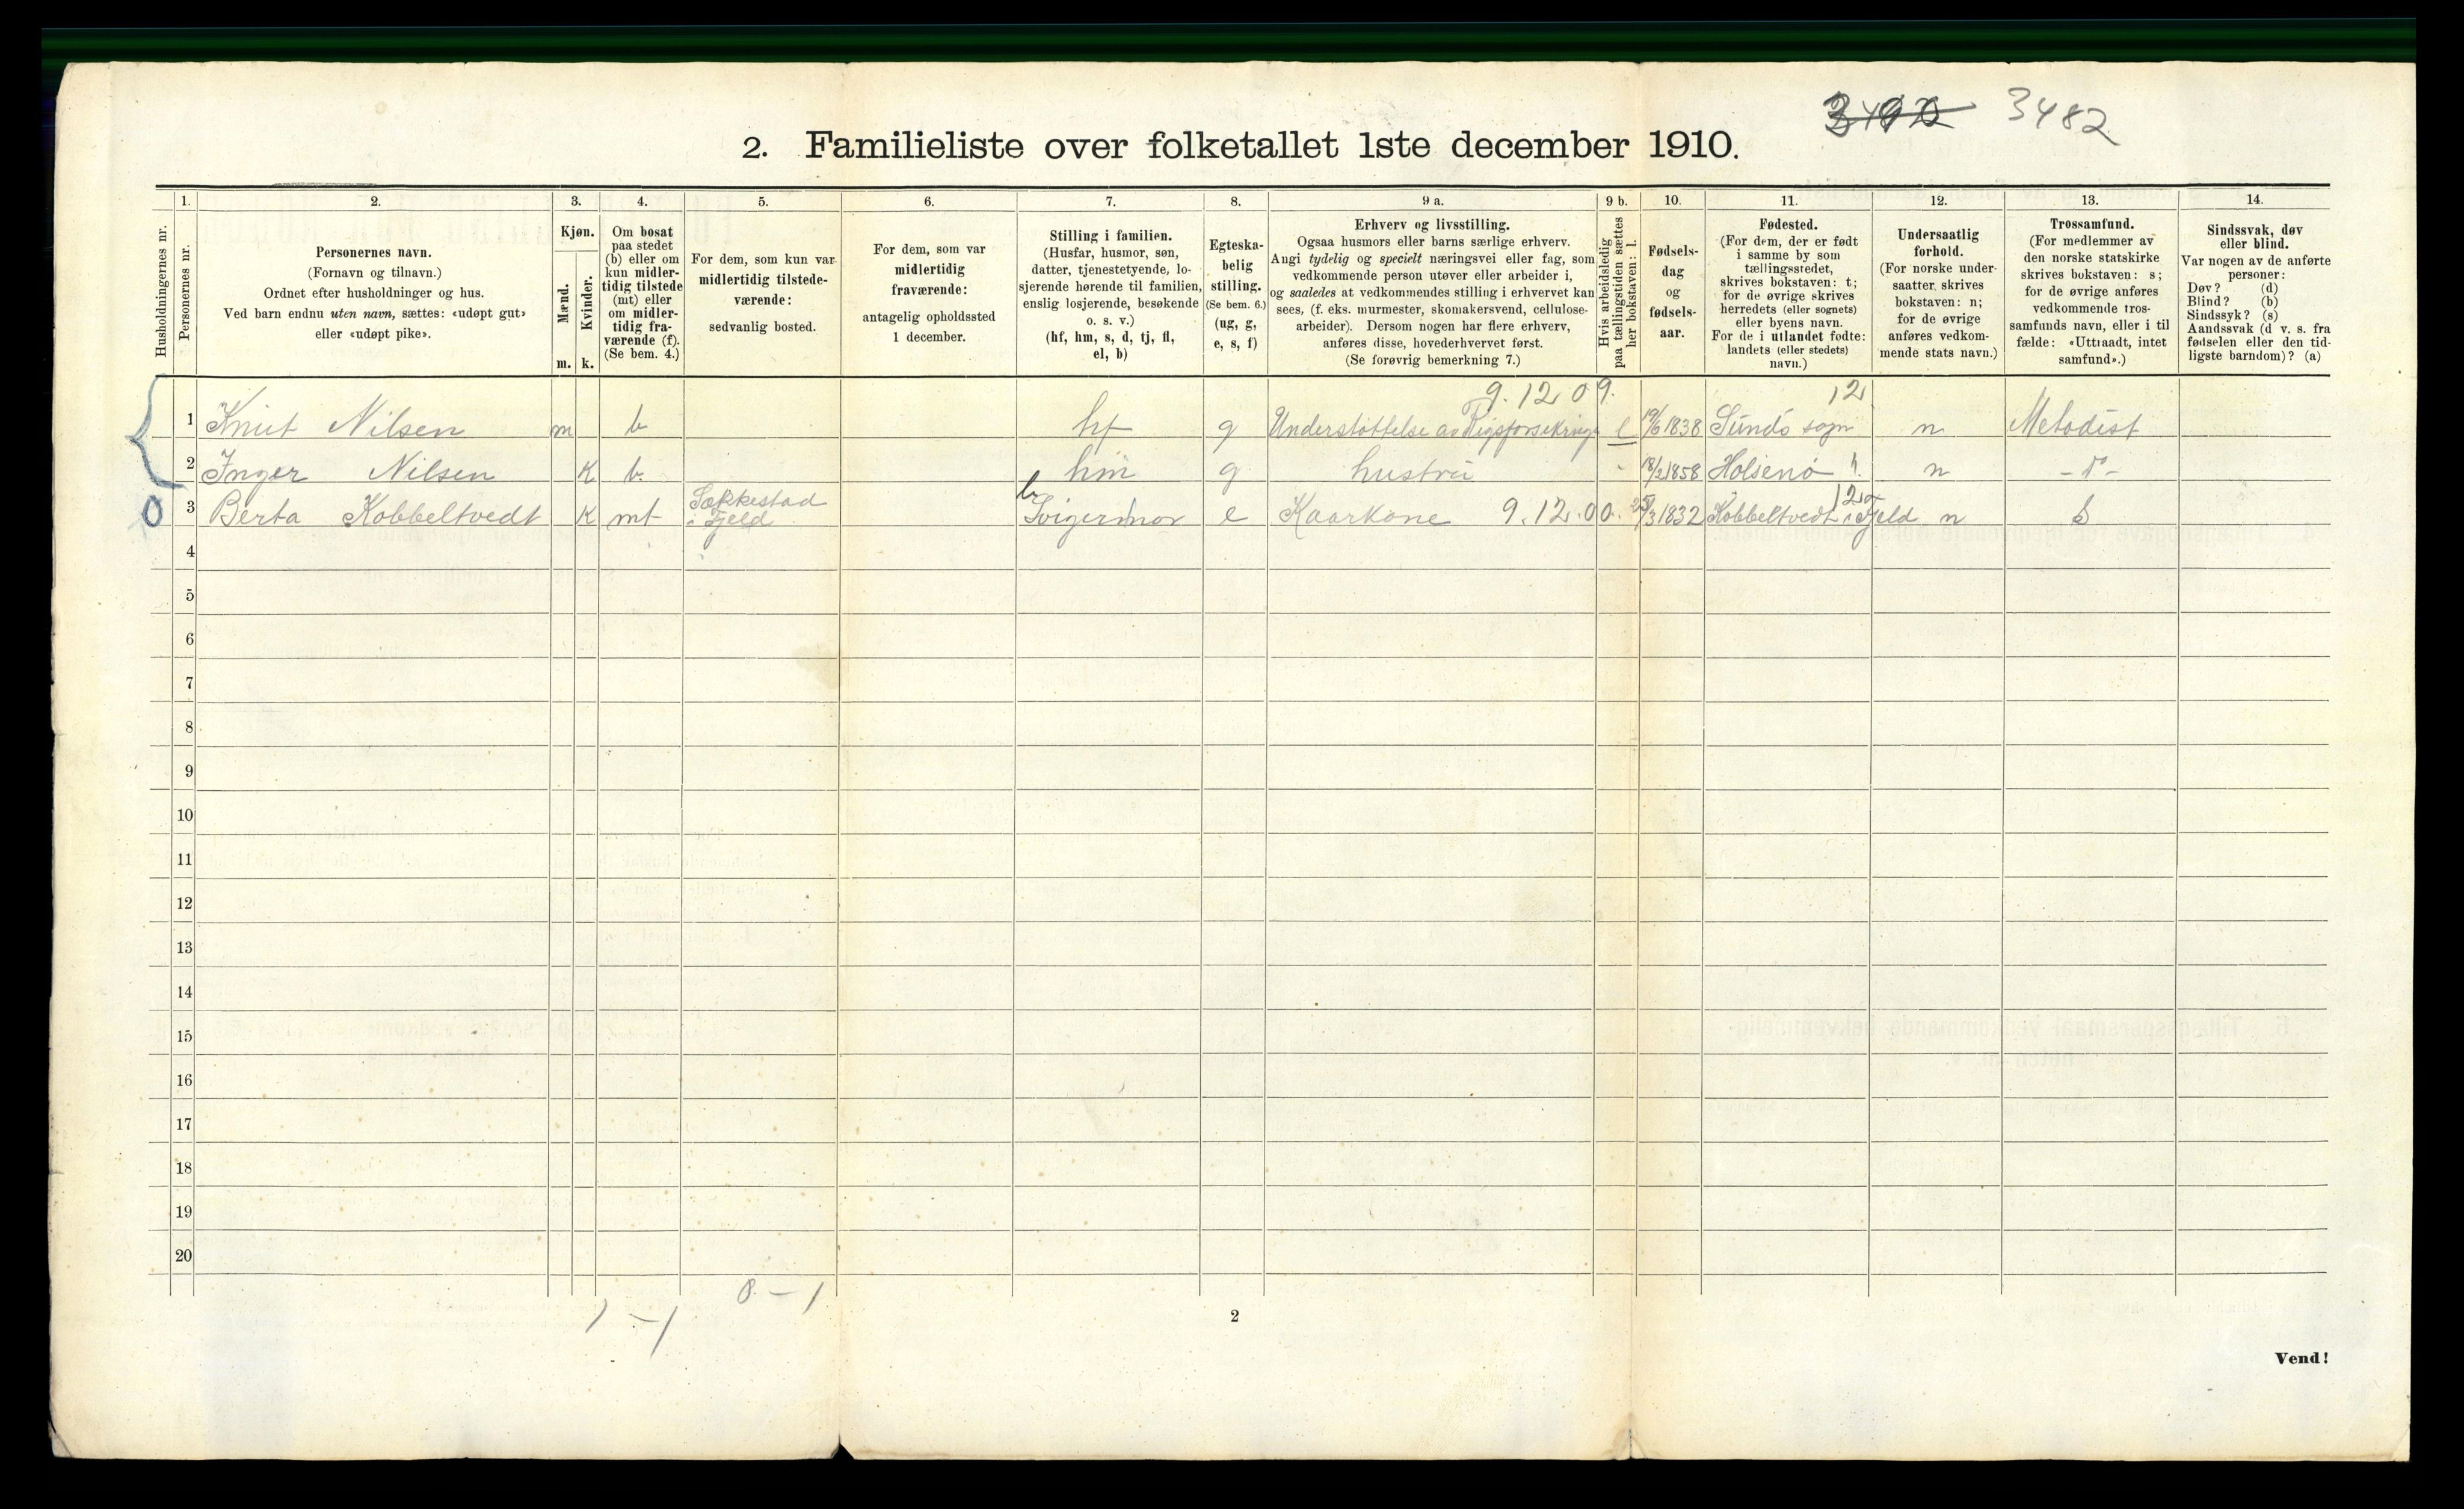 3482
2. Familieliste over folketallet 1ste december 1910.
Husholdningernes nr.
1. Personernes nr.
2.
Personernes navn.
(Fornavn og tilnavn.)
Ordnet efter husholdninger og hus.
Ved barn endnu uten navn, sættes: «udøpt gut»
eller «udøpt pike».
3.
Kjøn.
Mænd.
Kvinder.
m. k.
4.
Om bosat
paa stedet
(b) eller om
kun midler-
tidig tilstede
(mt) eller
om midler-
tidig fra-
værende (f).
(Se bem. 4.)
5.
For dem, som kun var
midlertidig tilstede-
værende:
sedvanlig bosted.
6.
For dem, som var
midlertidig
fraværende:
antagelig opholdssted
1 december.
7.
Stilling i familien.
(Husfar, husmor, søn,
datter, tjenestetyende, lo-
sjerende hørende til familien,
enslig losjerende, besøkende
o. s. v.)
(hf, hm, s, d, tj, fl,
el, b)
8.
Egteska-
belig
stilling.
(Se bem. 6.)
(ug, g,
e, s, f)
9 a.
Erhverv og livsstilling.
Ogsaa husmors eller barns særlige erhverv.
Angi tydelig og specielt næringsvei eller fag, som
vedkommende person utøver eller arbeider i,
og saaledes at vedkommendes stilling i erhvervet kan
sees, (f. eks. murmester, skomakersvend, cellulose-
arbeider). Dersom nogen har flere erhverv,
anføres disse, hovederhvervet først.
(Se forøvrig bemerkning 7.)
9 b.
Hvis arbeidsledig
paa tællingstiden sættes
her bokstaven: l.
10.
Fødsels-
dag
og
fødsels-
aar.
11.
Fødested.
(For dem, der er født
i samme by som
tællingsstedet,
skrives bokstaven: t;
for de øvrige skrives
herredets (eller sognets)
eller byens navn.
For de i utlandet fødte:
landets (eller stedets)
navn.)
12.
Undersaatlig
forhold.
(For norske under-
saatter skrives
bokstaven: n;
for de øvrige
anføres vedkom-
mende stats navn.)
13.
Trossamfund.
(For medlemmer av
den norske statskirke
skrives bokstaven: s;
for de øvrige anføres
vedkommende tros-
samfunds navn, eller i til
fælde: «Uttraadt, intet
samfund».)
14.
Sindssvak, døv
eller blind.
Var nogen av de anførte
personer:
Døv? (d)
Blind? (b)
Sindssyk? (s)
Aandssvak (d v. s. fra
fødselen eller den tid-
ligste barndom)? (a)
9.12 09. 12
1 Knut Nilsen m b hf g Understøttelse av Rigsforsikringe l 19/6 1838 Sundö sogn n Metodist
2 Inger Nilsen K b. hm g hustru - 18/2 1858 Holsenö h. n - d° -
0 3 Berta Kobbeltvedt K mt Sækkestad i Fjeld b Svigermor e Kaarkone 9.12.00. 25/3 1832 Kobbeltvedt i Fjeld 12 n S
4
5
6
7
8
9
10
11
12
13
14
15
16
17
18
19
20
0 - 1
1 - 1
2
Vend!